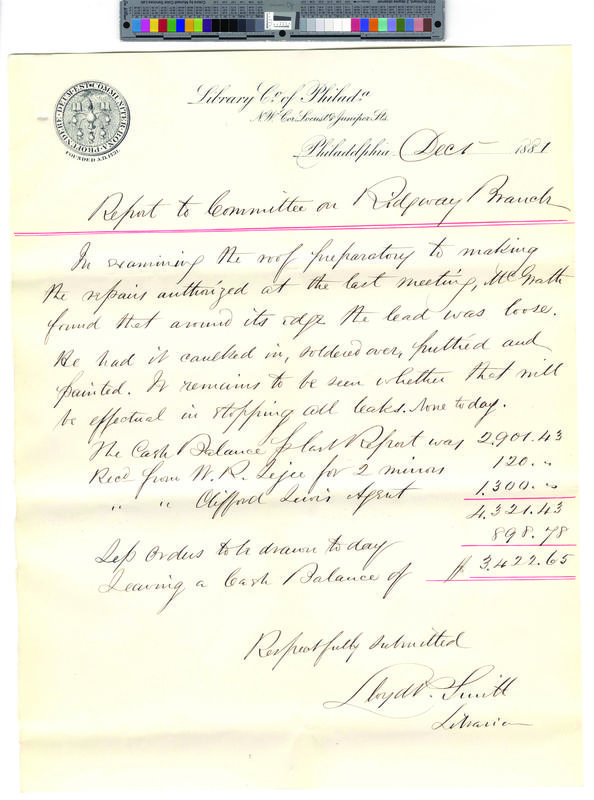 COMMUNITER BONA PROFUNDERE DEUM EST
FOUNDED A.D. 1731.
Library Co. of Philada.
N.W. Cor. Locust & Juniper Sts.
Philadelphia Dec 5 1881
Report to Committee on Ridgway Branch
In examining the roof preparatory to making
the repairs authorized at the last meeting, McGrath
found that around its edge the lead was loose.
He had it caulked in, soldered over, puttied and
painted. It remains to be seen whether that will
be effectual in stopping all leaks. None to day.
The Cash Balance p last Report was 2,901.43
Recd from W. R. Lejee for 2 mirrors 120. "
" " Clifford Lewis Agent 1.300. "
4.321.43
Less Orders to be drawn to day 898.78
Leaving a Cash Balance of $ 3.422.65
Respectfully submitted
Lloyd P. Smith
Librarian